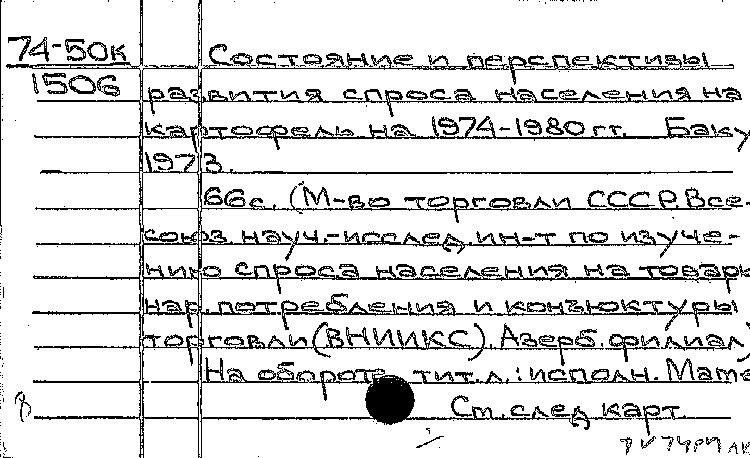 74-50к Состояние и перспективы
1506 развития спроса населения на
картофель на 1974-1980 гг. Баку
1973.
66с. (М-во торговли СССР. Все-
союз. науч.-исслед. ин-т по изуче-
нию спроса населения на товары
нар. потребления и конъюктуры
торговли (ВНИИКС). Азерб. филиал)
На обороте тит. л.: исполн. Мате
См. след карт.
8